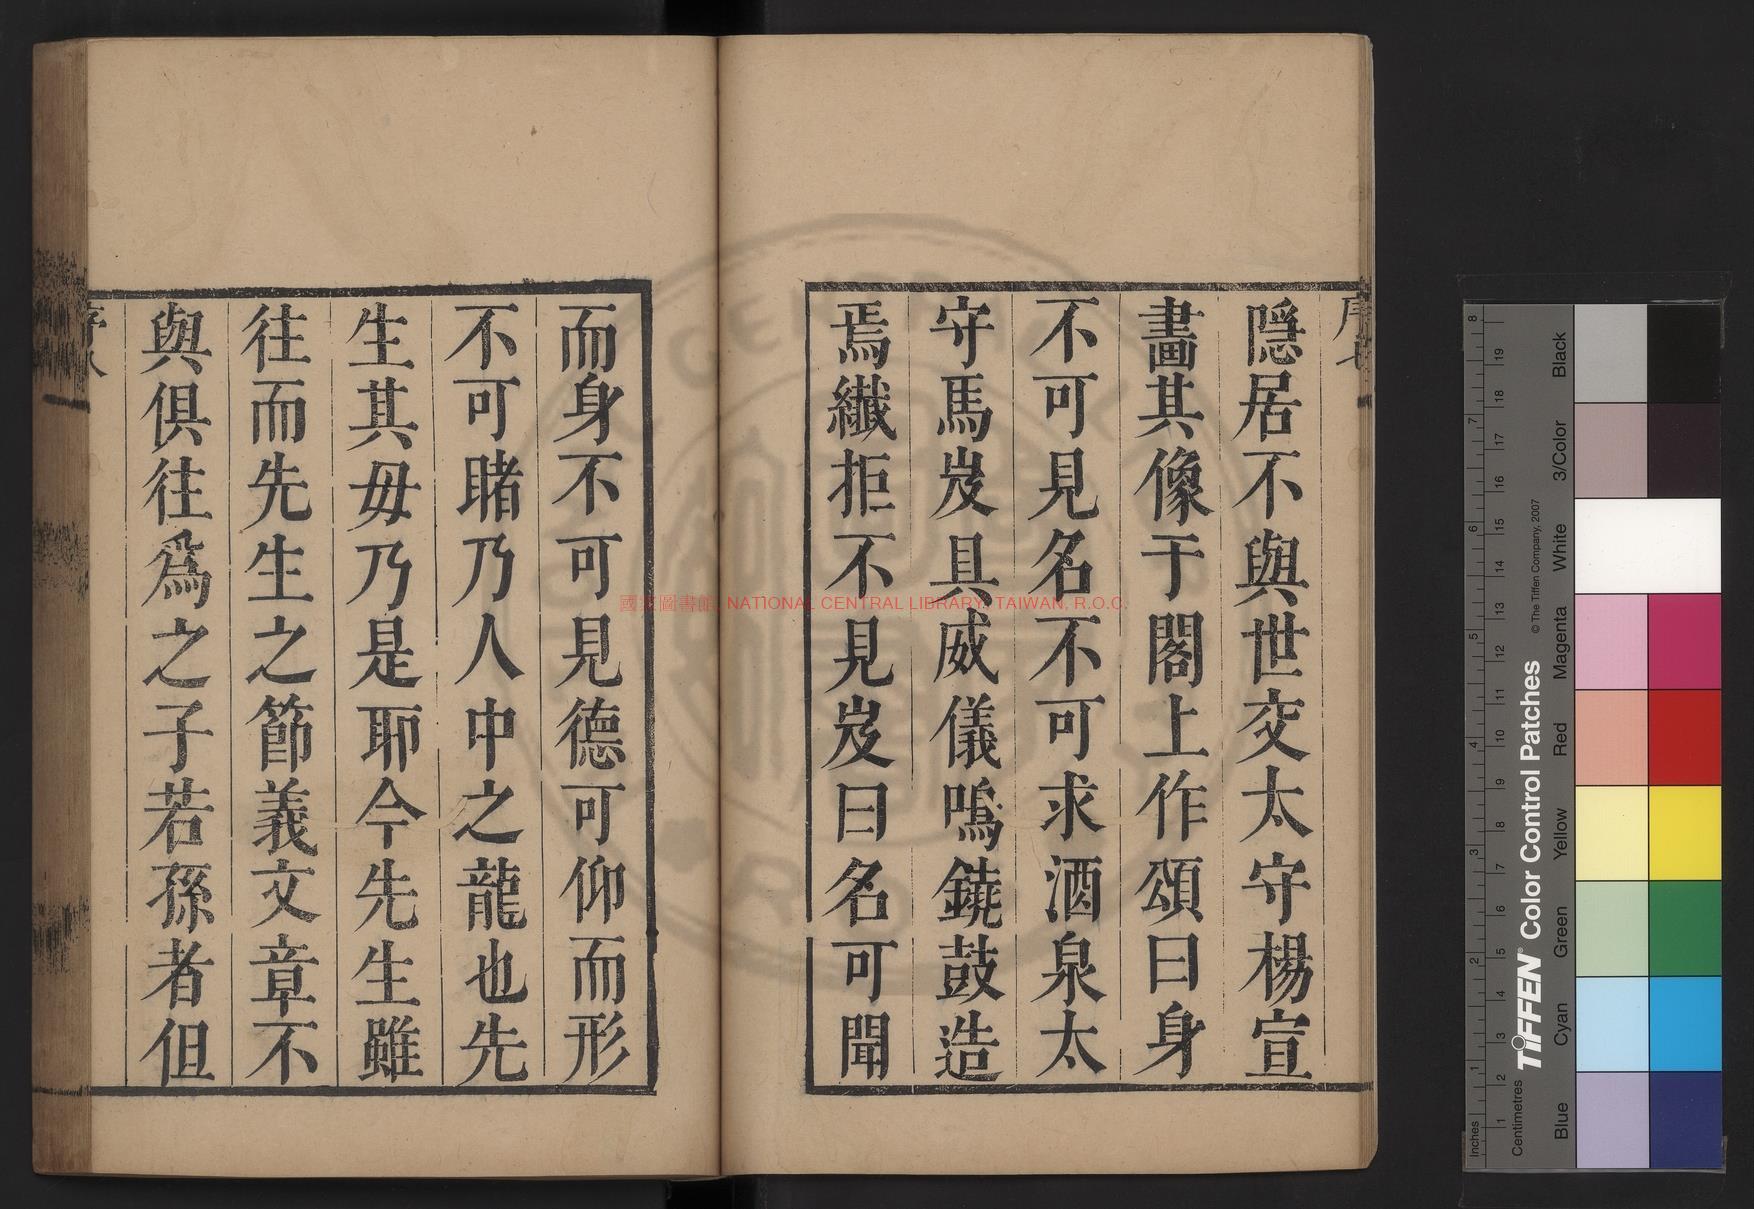 序七
隱居不與世交太守楊宣
畵其像于閣上作頌曰身
不可見名不可求酒泉太
守馬岌具威儀鳴鐃鼓造
焉纖拒不見岌曰名可聞
而身不可見德可仰而形
不可睹乃人中之龍也先
生其毋乃是耶今先生雖
往而先生之節義文章不
與俱往爲之子若孫者但
序八
國家圖書館, NATIONAL CENTRAL LIBRARY, TAIWAN, R.O.C.
TIFFEN® Color Control Patches
© The Tiffen Company, 2007
Inches
Centimetres
Blue
Cyan
Green
Yellow
Red
Magenta
White
3/Color
Black